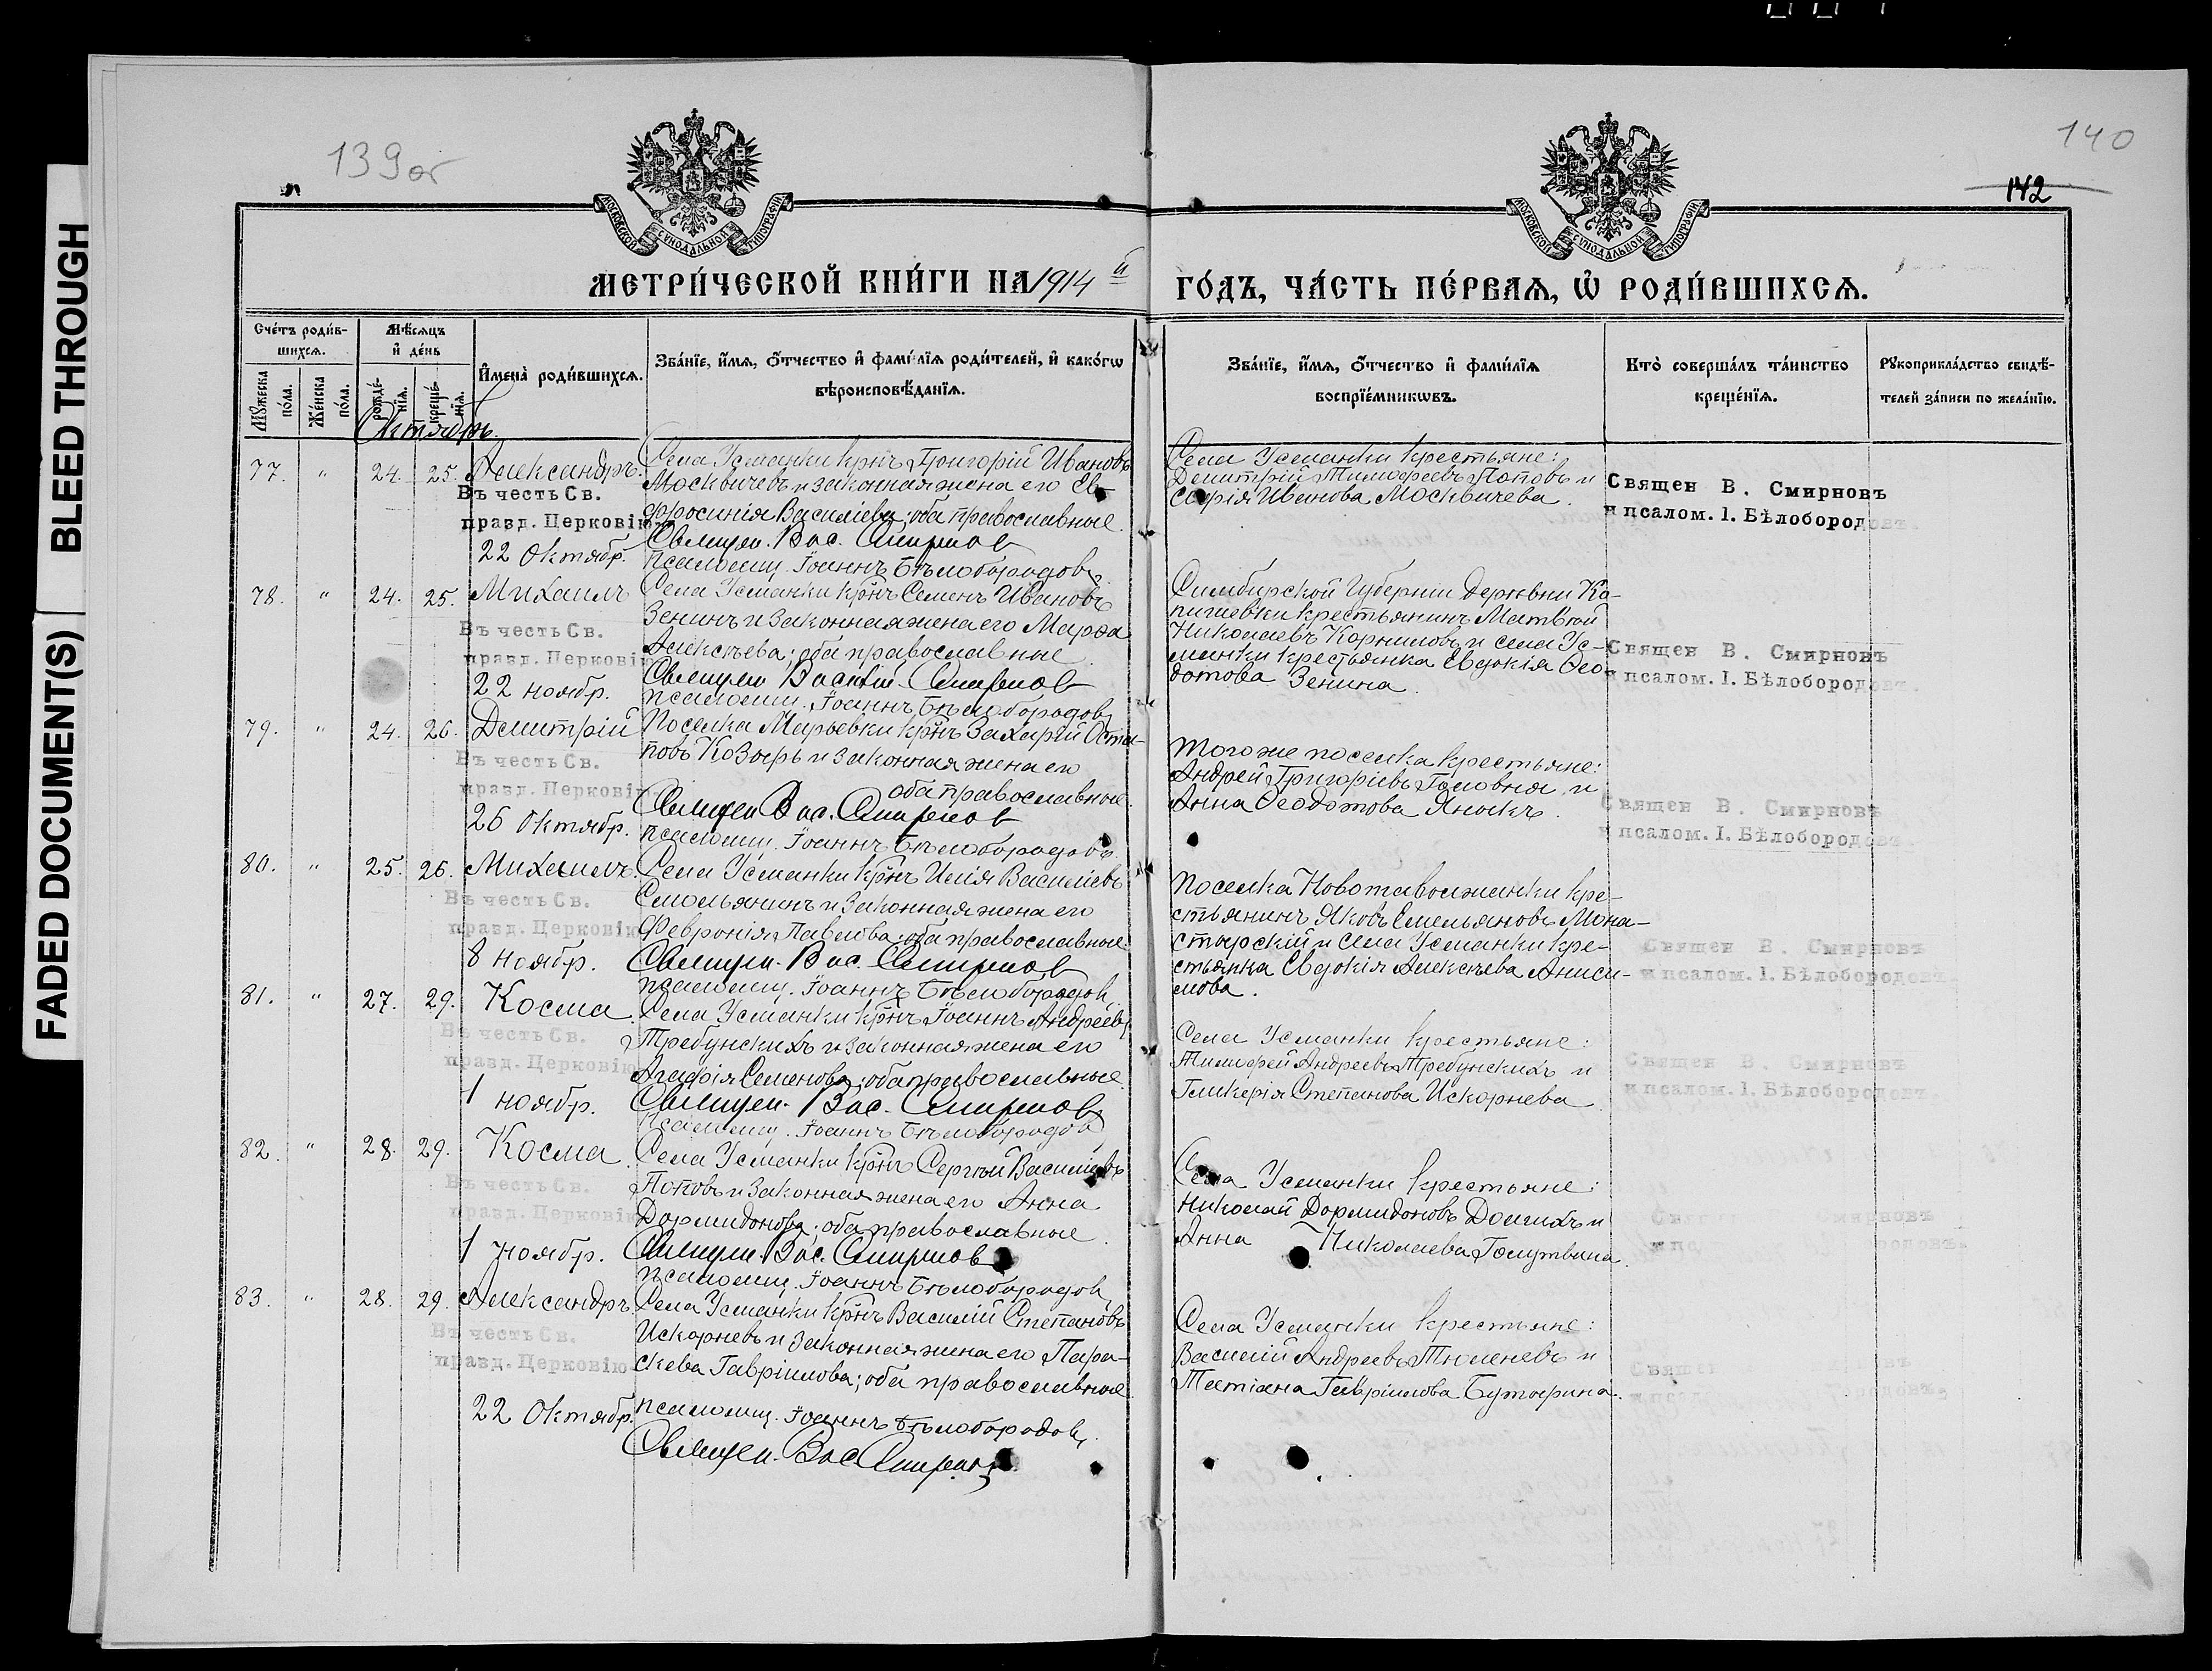 BLEED THROUGH
FADED DOCUMENT(S)
139об
140
142
МОСКОВСКОЙ СѴНОДАЛЬНОЙ ТИПОГРАФІИ
МОСКОВСКОЙ СѴНОДАЛЬНОЙ ТИПОГРАФІИ
МЕТРИ́ЧЕСКОЙ КНИ́ГИ НА 1914 й
ГО́ДЪ, ЧА́СТЬ ПЕ́РВАѦ, Ѽ РОДИ́ВШИХСѦ.
Сче́тъ роди́в-
шихсѧ.
Мꙋ́жеска
по́ла.
Же́нска
по́ла.
Мѣ́сѧцъ
и҆ де́нь
рожде́-
нїѧ.
креще́-
нїѧ.
И҆мена̀ роди́вшихсѧ.
Зва́нїе, и҆́мѧ, ѻ҆́тчество и҆ фами́лїѧ роди́телей, и҆ како́гѡ
вѣроисповѣ́данїѧ.
Зва́нїе, и҆́мѧ, ѻ҆́тчество и҆ фами́лїѧ
воспрїе́мникѡвъ.
Кто̀ соверша́лъ та́инство
креще́нїѧ.
Рꙋкоприкла́дство свидѣ́-
телей за́писи по жела́нїю.
Октябрь.
77. " 24. 25. Александръ.
Въ честь Св.
празд. Церковію
22 Октябр.
Села Усманки крнъ Григорій Ивановъ
Москвичевъ и законная жена его Ев-
фросинія Василіева; оба православные.
Священ. Вас. Смирнов
псаломщ. Іоаннъ Бѣлобородовъ.
Села Усманки крестьяне:
Димитрій Тимофеевъ Поповъ и
Софія Иванова Москвичева.
Священ В. Смирновъ
и псалом. І. Бѣлобородовъ.
78. " 24. 25. Михаилъ
Въ честь Св.
празд. Церковію
22 ноябр.
Села Усманки крнъ Семенъ Ивановъ
Зенинъ и законная жена его Марѳа
Алексѣева; оба православные.
Священ Василій Смирнов
псаломщ. Іоаннъ Бѣлобородовъ
Симбирской Губерніи деревни Ка-
Николаевъ Корниловъ и села Ус-
манки крестьянка Евдокія Ѳео-
дотова Зенина.
Священ В. Смирновъ
и псалом. І. Бѣлобородовъ.
79. " 24. 26. Димитрій
Въ честь Св.
празд. Церковію
26 Октябр.
Поселка Марьевки крнъ Захарій Оста-
повъ Козырь и законная жена его
оба православные.
Священ Вас. Смирнов
псаломщ. Іоаннъ Бѣлобородовъ.
Того же поселка крестьяне:
Андрей Григоріевъ Головня и
Анна Ѳеодотова
Священ В. Смирновъ
и псалом. І. Бѣлобородовъ.
80. " 25. 26. Михаилъ.
Въ честь Св.
празд. Церковію
8 ноябр.
Села Усманки крнъ Илія Василіевъ
Смольянинъ и законная жена его
Февронія Павлова; оба православные.
Священ. Вас. Смирнов
псаломщ. Іоаннъ Бѣлобородовъ
Поселка Новотаволжанки кре-
стьянинъ Яковъ Емельяновъ Мона-
стырскій и села Усманки кре-
стьянка Евдокія Алексѣева Аниси-
мова.
Священ В. Смирновъ
и псалом. І. Бѣлобородовъ.
81. " 27. 29. Косма.
Въ честь Св.
празд. Церковію
1 ноябр.
Села Усманки крнъ Іоаннъ Андреевъ
Требунскихъ и законная жена его
Агафія Семенова; оба православные.
Священ. Вас. Смирнов
псаломщ. Іоаннъ Бѣлобородов
Села Усманки крестьяне:
Тимофей Андреевъ Требунскихъ и
Гликерія Степанова Искорнева.
Священ В. Смирновъ
и псалом. І. Бѣлобородовъ.
82. " 28. 29. Косма.
Въ честь Св.
празд. Церковію
1 ноябр.
Села Усманки крнъ Сергѣй Василіевъ
Поповъ и законная жена его Анна
Дормидонова; оба православные.
Священ. Вас. Смирнов
псаломщ. Іоаннъ Бѣлобородов
Села Усманки крестьяне:
Николай Дормидоновъ Долгихъ и
Анна Николаева Голутвина.
83. " 28. 29. Александръ.
Въ честь Св.
празд. Церковію
22 Октябр.
Села Усманки крнъ Василій Степановъ
Искорневъ и законная жена его Пара-
скева Гавріилова; оба православные.
псаломщ. Іоаннъ Бѣлобородов
Священ. Вас Смирнов
Села Усманки крестьяне:
Василій Андреевъ Тюленевъ и
Татіана Гавріилова Бутырина.